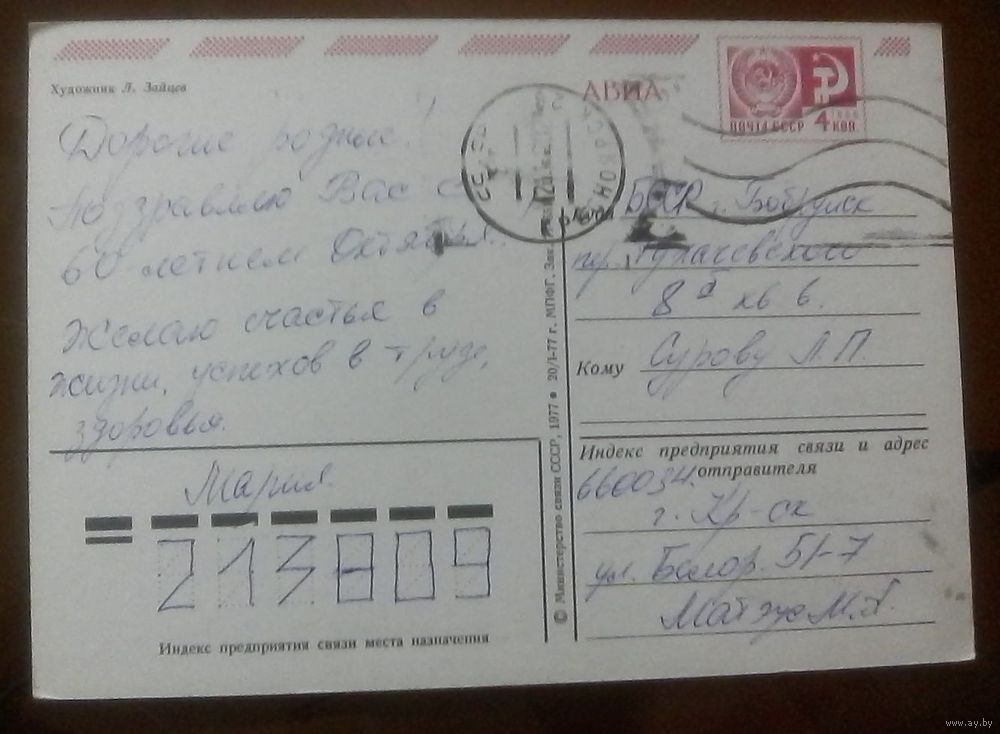 Художник Л. Зайцев
АВИА
ПОЧТА СССР 4 КОП
1966
Дорогие родные!
Поздравляю Вас с
60-летием Октября.
Желаю счастья в
жизни, успехов в труде,
здоровья.
Мария.
213809
Индекс предприятия связи места назначения
© Министерство связи СССР, 1977 • 20/I-77 г. МПФГ. Зак.
Куда БССР г. Бобруйск
пер. Тухачевского
8а кв 6.
Кому Сурову Л.П.
Индекс предприятия связи и адрес
отправителя
660034.
г. Кр-ск
ул. Белор. 51-7
М.А.
www.ay.by